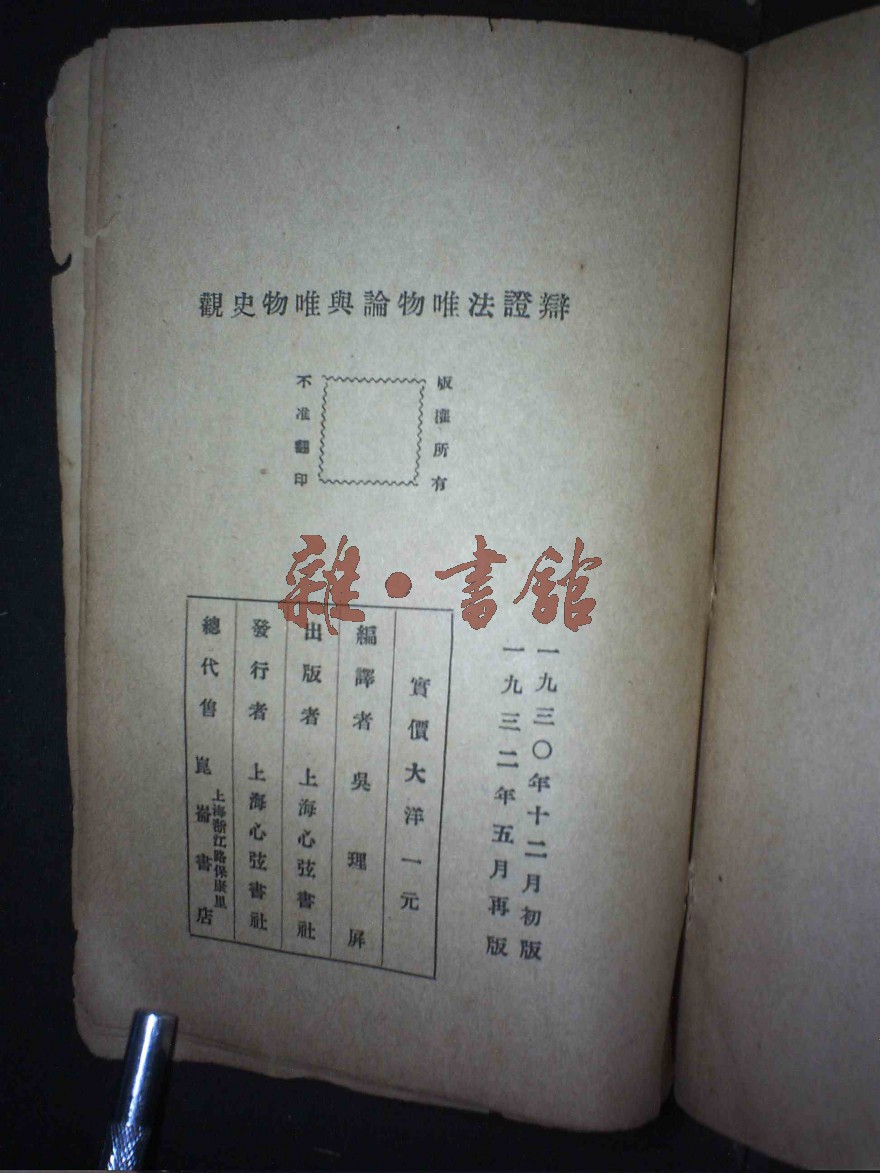 辯證法唯物論與唯物史觀
版權所有
不准翻印
雜·書館
一九三〇年十二月初版
一九三二年五月再版
實價大洋一元
編譯者 吳理屏
出版者 上海心弦書社
發行者 上海心弦書社
總代售 崑崙書店
上海浙江路保康里